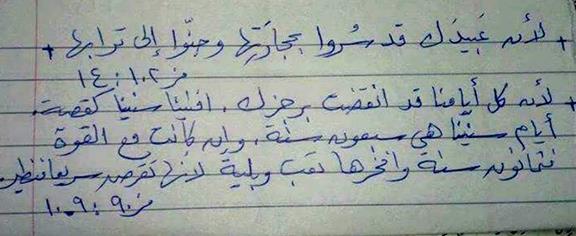 + لأن عبيدك قد سُروا بحجارتها وحنّوا إلى ترابها +
مز ١٠٢ : ١٤
+ لأن كل أيامنا قد انقضت برجزك . افنينا سنينا كقصة .
أيام سنينا هي سبعون سنة . وإن كانت مع القوة
فثمانون سنة وافخرها تعب وبلية لانها تقرض سريعا فنطير .
مز ٩٠ : ٩ ، ١٠